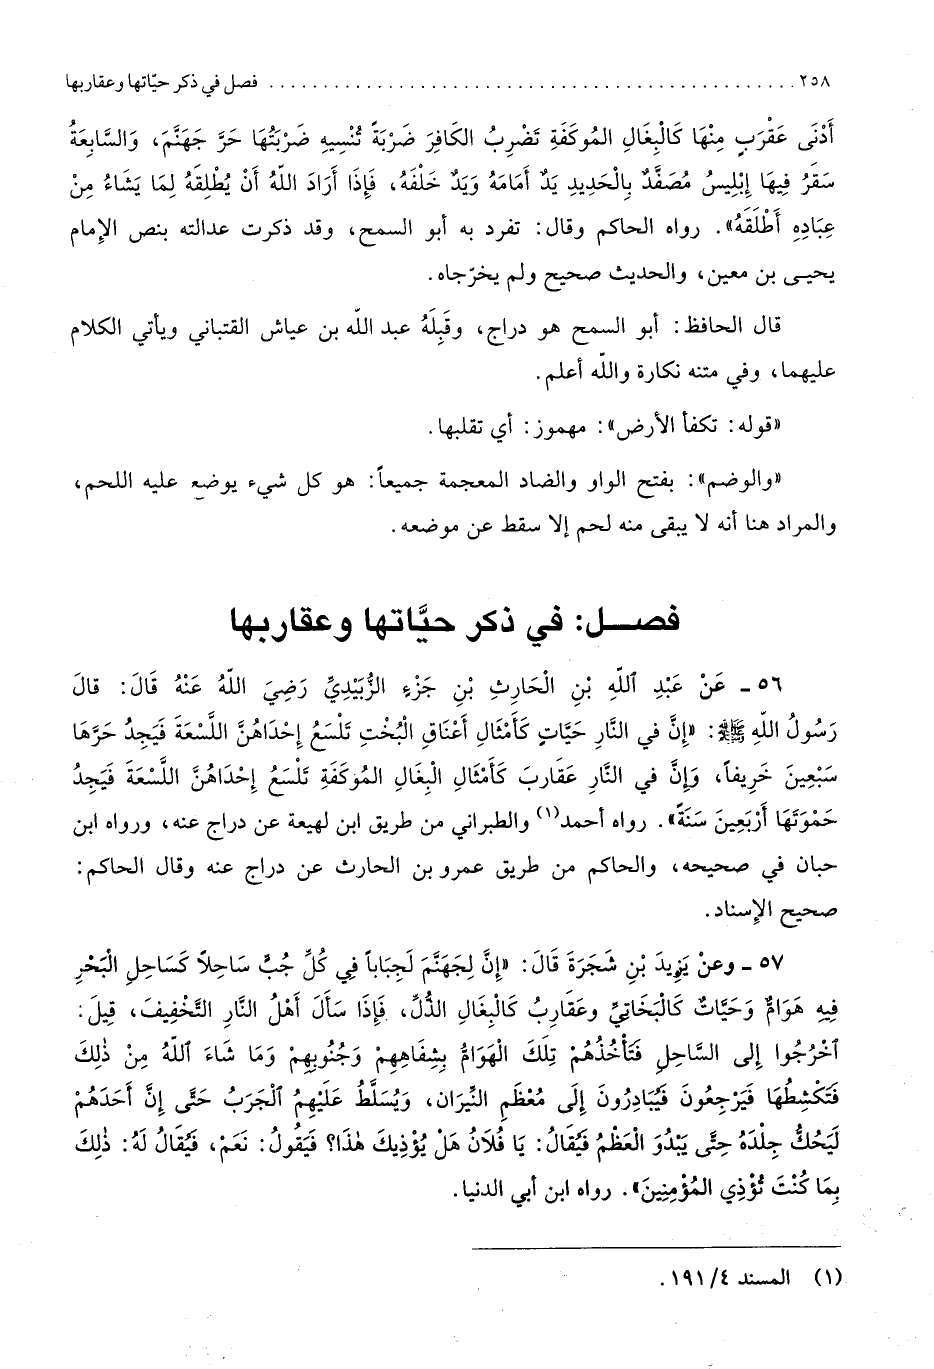 ٢٥٨ ........................................ فصل في ذكر حيّاتها وعقاربها
أَدْنَى عَقْرَبٍ مِنْهَا كَالْبِغَالِ المُوكَفَةِ تَضْرِبُ الكَافِرَ ضَرْبَةً تُنْسِيهِ ضَرْبَتُهَا حَرَّ جَهَنَّمَ، وَالسَّابِعَةُ
سَقَرُ فِيهَا إِبْلِيسُ مُصَفَّدٌ بِالْحَدِيدِ يَدٌ أَمَامَهُ وَيَدٌ خَلْفَهُ، فَإِذَا أَرَادَ اللَّهُ أَنْ يُطْلِقَهُ لِمَا يَشَاءُ مِنْ
عِبَادِهِ أَطْلَقَهُ». رواه الحاكم وقال: تفرد به أبو السمح، وقد ذكرت عدالته بنص الإمام
يحيى بن معين، والحديث صحيح ولم يخرّجاه.
قال الحافظ: أبو السمح هو دراج، وقَبِلَهُ عبد اللَّه بن عياش القتباني ويأتي الكلام
عليهما، وفي متنه نكارة واللَّه أعلم.
«قوله: تكفأ الأرض»: مهموز: أي تقلبها.
«والوضم»: بفتح الواو والضاد المعجمة جميعاً: هو كل شيء يوضع عليه اللحم،
والمراد هنا أنه لا يبقى منه لحم إلا سقط عن موضعه.
فصل: في ذكر حيَّاتها وعقاربها
٥٦ - عَنْ عَبْدِ ٱللَّهِ بْنِ الْحَارِثِ بْنِ جَزْءٍ الزُّبَيْدِيِّ رَضِيَ اللَّهُ عَنْهُ قَالَ: قالَ
رَسُولُ اللَّهِ ﷺ: «إِنَّ في النَّارِ حَيَّاتٍ كَأَمْثَالِ أَعْنَاقِ الْبُخْتِ تَلْسَعُ إِحْدَاهُنَّ اللَّسْعَةَ فَيَجِدُ حَرَّهَا
سَبْعِينَ خَرِيفاً، وَإِنَّ في النَّارِ عَقَارِبَ كَأَمْثَالِ الْبِغَالِ المُوكَفَةِ تَلْسَعُ إِحْدَاهُنَّ اللَّسْعَةَ فَيَجِدُ
حَمْوَتَهَا أَرْبَعِينَ سَنَةً». رواه أحمد(١) والطبراني من طريق ابن لهيعة عن دراج عنه، ورواه ابن
حبان في صحيحه، والحاكم من طريق عمرو بن الحارث عن دراج عنه وقال الحاكم:
صحيح الإسناد.
٥٧ - وعنْ يَزِيدَ بْنِ شَجَرَةَ قَالَ: «إِنَّ لِجَهَنَّمَ لَجِبَاباً فِي كُلِّ جُبٍّ سَاحِلاً كَسَاحِلِ الْبَحْرِ
فِيهِ هَوَامٌّ وَحَيَّاتٌ كَالْبَخَاتِيِّ وعَقَارِبُ كَالْبِغَالِ الذُّلِّ، فَإِذَا سَأَلَ أَهْلُ النَّارِ التَّخْفِيفَ، قِيلَ:
ٱخْرُجُوا إِلى السَّاحِلِ فَتَأْخُذُهُمْ تِلْكَ الْهَوَامُّ بِشِفَاهِهِمْ وَجُنُوبِهِمْ وَمَا شَاءَ ٱللَّهُ مِنْ ذٰلِكَ
فَتَكْشِطُهَا فَيَرْجِعُونَ فَيُبَادِرُونَ إِلَى مُعْظَمِ النِّيرَانِ، وَيُسَلَّطُ عَلَيْهِمُ ٱلْجَرَبُ حَتَّى إِنَّ أَحَدَهُمْ
لَيَحُكُّ جِلْدَهُ حتَّى يَبْدُوَ الْعَظْمُ فَيُقَالُ: يَا فُلَانُ هَلْ يُؤْذِيكَ هٰذَا؟ فَيَقُولُ: نَعَمْ، فَيُقَالُ لَهُ: ذٰلِكَ
بِمَا كُنْتَ تُؤْذِي المُؤْمِنِينَ». رواه ابن أبي الدنيا.
(١) المسند ١٩١/٤.